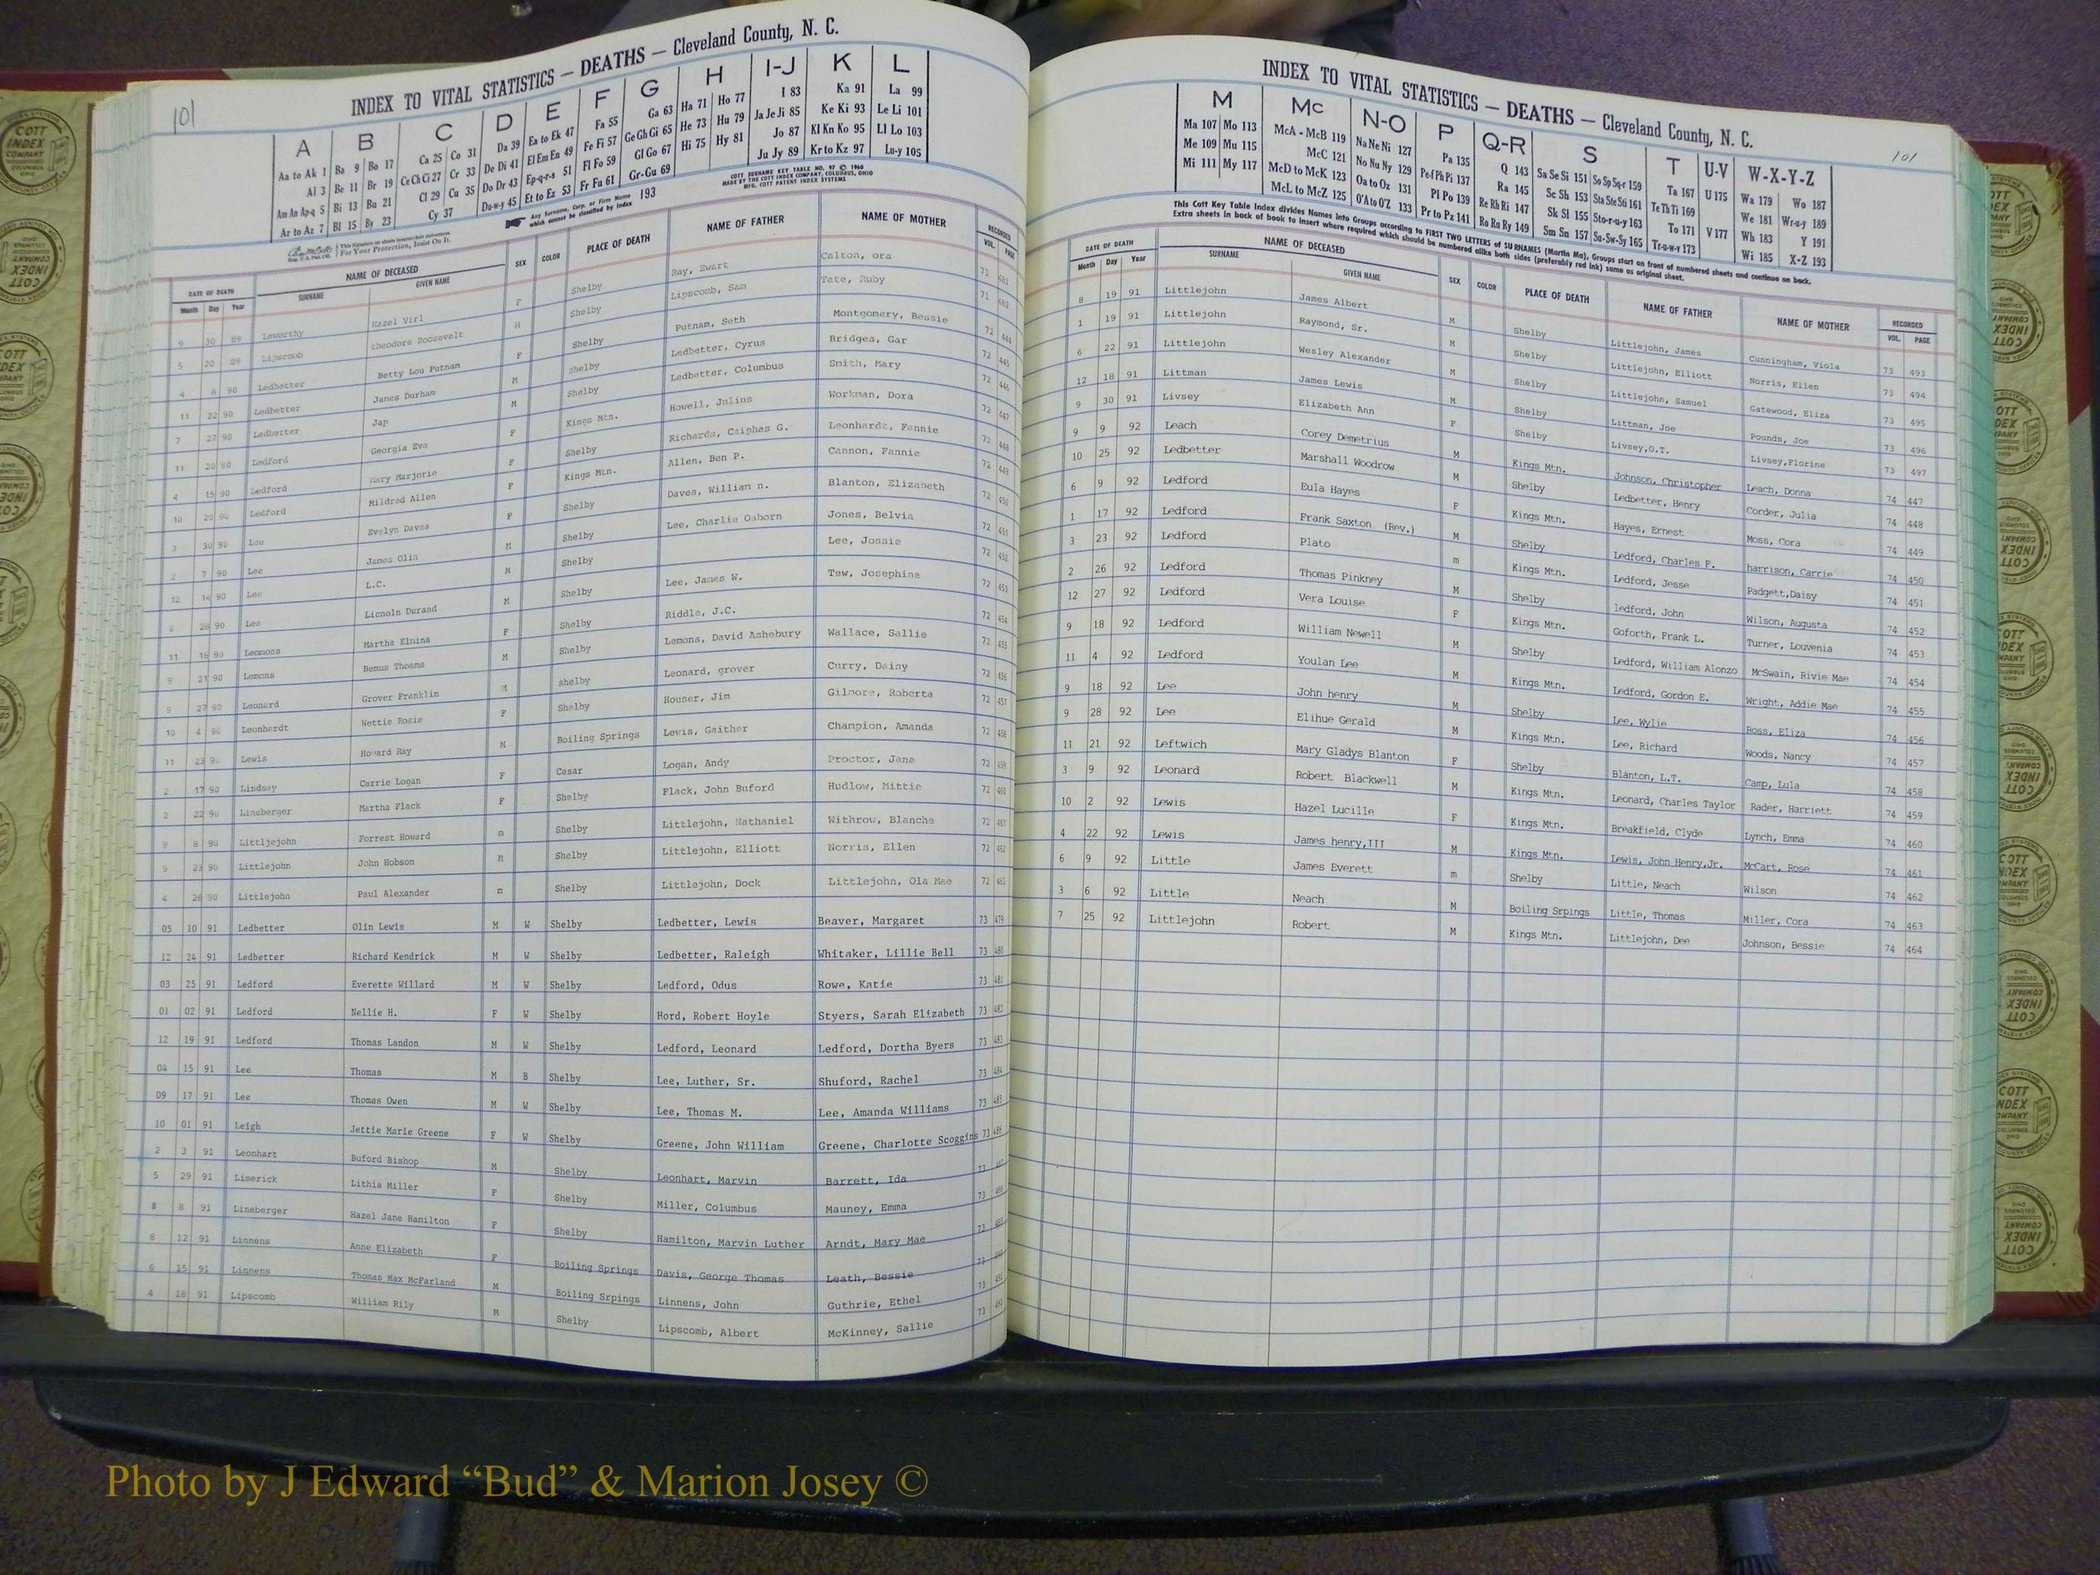 INDEX TO VITAL STATISTICS — DEATHS — Cleveland County, N. C.
101
A B C D E F G H I-J K L
Aa to Ak 1 Ba 9 Bo 17 Ca 25 Co 31 Da 39 Ea to Ek 47 Fa 55 Ga 63 Ha 71 Ho 77 I 83 Ka 91 La 99
Al 3 Be 11 Br 19 Ce Ch Ci 27 Cr 33 De Di 41 El Em En 49 Fe Fi 57 Ge Gh Gi 65 He 73 Hu 79 Ja Je Ji 85 Ke Ki 93 Le Li 101
Am An Ap-q 5 Bi 13 Bu 21 Cl 29 Cu 35 Do Dr 43 Ep-q-r-s 51 Fl Fo 59 Gl Go 67 Hi 75 Hy 81 Jo 87 Kl Kn Ko 95 Ll Lo 103
Ar to Az 7 Bl 15 By 23 Cy 37 Du-w-y 45 Et to Ez 53 Fr Fu 61 Gr-Gu 69 Ju Jy 89 Kr to Kz 97 Lu-y 105
Any Surname, Corp. or Firm Name which cannot be classified by index 193
COTT SURNAME KEY TABLE NO. 97 © 1960
MADE BY THE COTT INDEX COMPANY, COLUMBUS, OHIO
MFG. COTT PATENT INDEX SYSTEMS
For Your Protection, Insist On It.
DATE OF DEATH NAME OF DECEASED SEX COLOR PLACE OF DEATH NAME OF FATHER NAME OF MOTHER RECORDED
Month Day Year SURNAME GIVEN NAME VOL. PAGE
9 30 89 Leworthy Hazel Virl F Shelby Ray, Ewart Calton, ora 71 481
5 20 89 Lipscomb theodore Roosevelt M Shelby Lipscomb, Sam Tate, Ruby 71 482
4 8 90 Ledbetter Betty Lou Putnam F Shelby Putnam, Seth Montgomery, Bessie 72 444
11 22 90 Ledbetter James Durham M shelby Ledbetter, Cyrus Bridges, Gar 72 445
7 27 90 Ledbetter Jap M Shelby Ledbetter, Columbus Smith, Mary 72 446
11 20 90 Ledford Georgia Eva F Kings Mtn. Howell, Julius Workman, Dora 72 447
4 15 90 Ledford Mary Marjorie F Shelby Richards, Caiphas G. Leonhardt, Fannie 72 448
10 20 90 Ledford Mildred Allen F Kings Mtn. Allen, Ben P. Cannon, Fannie 72 449
3 30 90 Lee Evelyn Daves F Shelby Daves, William n. Blanton, Elizabeth 72 450
2 7 90 Lee James Olin M Shelby Lee, Charlie Osborn Jones, Belvia 72 451
12 14 90 Lee L.C. M Shelby Lee, Jossie 72 452
6 28 90 Lee Licnoln Durand M Shelby Lee, James W. Tew, Josephine 72 453
11 16 90 Lemmons Martha Elnina F Shelby Riddle, J.C. 72 454
9 21 90 Lemons Bemus Thoams M Shelby Lemons, David Ashebury Wallace, Sallie 72 455
9 27 90 Leonard Grover Franklin M shelby Leonard, grover Curry, Daisy 72 456
10 4 90 Leonhardt Nettie Rosie F Shelby Houser, Jim Gilmore, Roberta 72 457
11 23 90 Lewis Howard Ray M Boiling Springs Lewis, Gaither Champion, Amanda 72 458
2 17 90 Lindsay Carrie Logan F Casar Logan, Andy Proctor, Jane 72 459
2 22 90 Lineberger Martha Flack F Shelby Flack, John Buford Hudlow, Mittie 72 460
9 8 90 Littljejohn Forrest Howard m Shelby Littlejohn, Nathaniel Withrow, Blanche 72 461
9 23 90 Littlejohn John Hobson M Shelby Littlejohn, Elliott Norris, Ellen 72 462
4 26 90 Littlejohn Paul Alexander m Shelby Littlejohn, Dock Littlejohn, Ola Mae 72 463
05 10 91 Ledbetter Olin Lewis M W Shelby Ledbetter, Lewis Beaver, Margaret 73 479
12 24 91 Ledbetter Richard Kendrick M W Shelby Ledbetter, Raleigh Whitaker, Lillie Bell 73 480
03 25 91 Ledford Everette Willard M W Shelby Ledford, Odus Rowe, Katie 73 481
01 02 91 Ledford Nellie H. F W Shelby Hord, Robert Hoyle Styers, Sarah Elizabeth 73 482
12 19 91 Ledford Thomas Landon M W Shelby Ledford, Leonard Ledford, Dortha Byers 73 483
04 15 91 Lee Thomas M B Shelby Lee, Luther, Sr. Shuford, Rachel 73 484
09 17 91 Lee Thomas Owen M W Shelby Lee, Thomas M. Lee, Amanda Williams 73 485
10 01 91 Leigh Jettie Marie Greene F W Shelby Greene, John William Greene, Charlotte Scoggins 73 486
2 3 91 Leonhart Buford Bishop M Shelby Leonhart, Marvin Barrett, Ida 73
5 29 91 Limerick Lithia Miller F Shelby Miller, Columbus Mauney, Emma 73
8 8 91 Lineberger Hazel Jane Hamilton F Shelby Hamilton, Marvin Luther Arndt, Mary Mae 73
8 12 91 Linnens Anne Elizabeth F Boiling Springs Davis, George Thomas Leath, Bessie 73
6 15 91 Linnens Thomas Max McFarland M Boiling Srpings Linnens, John Guthrie, Ethel 73
4 18 91 Lipscomb William Rily M Shelby Lipscomb, Albert McKinney, Sallie 73 492
INDEX TO VITAL STATISTICS — DEATHS — Cleveland County, N. C.
101
M Mc N-O P Q-R S T U-V W-X-Y-Z
Ma 107 Mo 113 McA - McB 119 Na Ne Ni 127 Pa 135 Q 143 Sa Se Si 151 So Sp Sq-r 159 Ta 167 U 175 Wa 179 Wo 187
Me 109 Mu 115 McC 121 No Nu Ny 129 Pe-f Ph Pi 137 Ra 145 Sc Sh 153 Sta Ste Sti 161 Te Th Ti 169 We 181 Wr-u-y 189
Mi 111 My 117 McD to McK 123 Oa to Oz 131 Pl Po 139 Re Rh Ri 147 Sk Sl 155 Sto-r-u-y 163 To 171 V 177 Wh 183 Y 191
McL to McZ 125 O'A to O'Z 133 Pr to Pz 141 Ro Ru Ry 149 Sm Sn 157 Su-Sw-Sy 165 Tr-u-w-y 173 Wi 185 X-Z 193
This Cott Key Table Index divides Names into Groups according to FIRST TWO LETTERS of SURNAMES (Martin Ma), Groups start on front of numbered sheets and continue on back.
Extra sheets in back of book to insert where required which should be numbered alike both sides (preferably red ink) same as original sheet.
DATE OF DEATH NAME OF DECEASED SEX COLOR PLACE OF DEATH NAME OF FATHER NAME OF MOTHER RECORDED
Month Day Year SURNAME GIVEN NAME VOL. PAGE
8 19 91 Littlejohn James Albert M Shelby Littlejohn, James Cunningham, Viola 73 493
1 19 91 Littlejohn Raymond, Sr. M Shelby Littlejohn, Elliott Norris, Ellen 73 494
6 22 91 Littlejohn Wesley Alexander M Shelby Littlejohn, Samuel Gatewood, Eliza 73 495
12 18 91 Littman James Lewis M Shelby Littman, Joe Pounds, Joe 73 496
9 30 91 Livsey Elizabeth Ann F Shelby Livsey,O.T. Livsey,Florine 73 497
9 9 92 Leach Corey Demetrius M Kings Mtn. Johnson, Christopher Leach, Donna 74 447
10 25 92 Ledbetter Marshall Woodrow M Shelby Ledbetter, Henry Corder, Julia 74 448
6 9 92 Ledford Eula Hayes F Kings Mtn. Hayes, Ernest Moss, Cora 74 449
1 17 92 Ledford Frank Saxton (Rev.) M Shelby Ledford, Charles F. harrison, Carrie 74 450
3 23 92 Ledford Plato m Kings Mtn. Ledford, Jesse Padgett,Daisy 74 451
2 26 92 Ledford Thomas Pinkney M Shelby ledford, John Wilson, Augusta 74 452
12 27 92 Ledford Vera Louise F Kings Mtn. Goforth, Frank L. Turner, Louvenia 74 453
9 18 92 Ledford William Newell M Shelby Ledford, William Alonzo McSwain, Rivie Mae 74 454
11 4 92 Ledford Youlan Lee M Kings Mtn. Ledford, Gordon E. Wright, Addie Mae 74 455
9 18 92 Lee John henry M Shelby Lee, Wylie Ross, Eliza 74 456
9 28 92 Lee Elihue Gerald M Kings Mtn. Lee, Richard Woods, Nancy 74 457
11 21 92 Leftwich Mary Gladys Blanton F Shelby Blanton, L.T. Camp, Lula 74 458
3 9 92 Leonard Robert Blackwell M Kings Mtn. Leonard, Charles Taylor Rader, Harriett 74 459
10 2 92 Lewis Hazel Lucille F Kings Mtn. Breakfield, Clyde Lynch, Emma 74 460
4 22 92 Lewis James henry,III M Kings Mtn. Lewis, John Henry,Jr. McCart, Rose 74 461
6 9 92 Little James Everett m Shelby Little, Neach Wilson 74 462
3 6 92 Little Neach M Boiling Srpings Little, Thomas Miller, Cora 74 463
7 25 92 Littlejohn Robert M Kings Mtn. Littlejohn, Dee Johnson, Bessie 74 464
Photo by J Edward “Bud” & Marion Josey ©